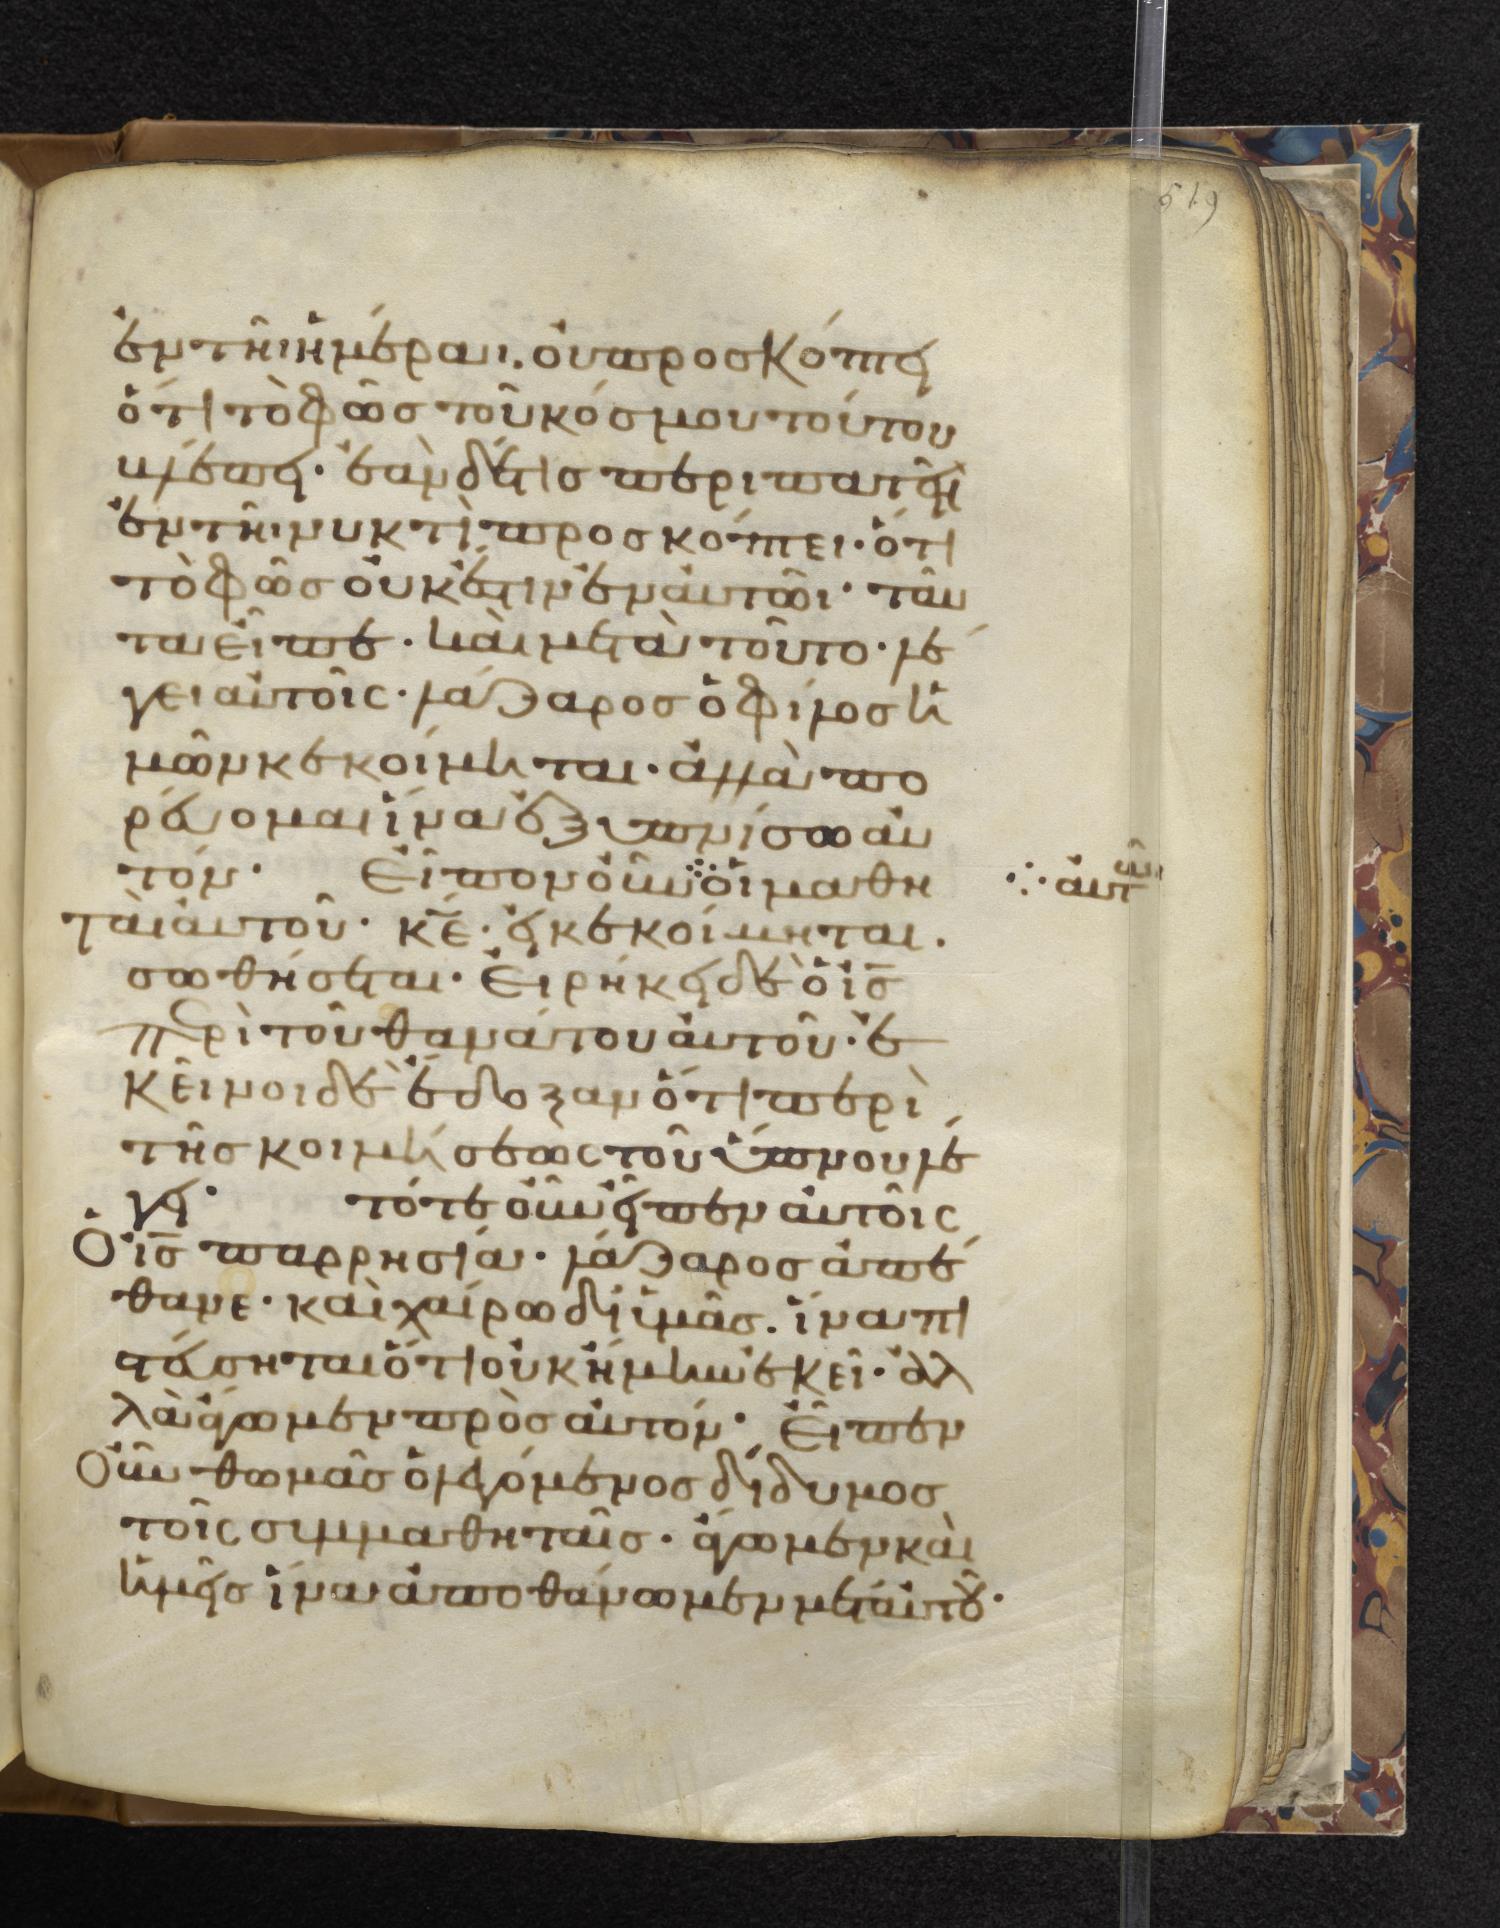 519
ἐν τῆι ἡμέραι. οὐ προσκόπτει
ὅτι τὸ φῶς τοῦ κόσμου τούτου
βλέπει· ἐὰν δέ τις περιπατῆι
ἐν τῆι νυκτὶ προσκόπτει· ὅτι
τὸ φῶς οὐκ ἔστιν ἐν αὐτῶι· ταῦ
τα εἶπε· καὶ μετὰ τοῦτο· λέ
γει αὐτοῖς· λάζαρος ὁ φίλος ἡ
μῶν κεκοίμηται· ἀλλὰ πο
ρεύομαι ἵνα ἐξυπνίσω αὐ
τόν· Εἶπον οὖν ⁘ οἱ μαθη
ταὶ αὐτοῦ· κε̄· εἰ κεκοίμηται.
σωθήσεται· Εἰρήκει δὲ ὁ ις̄
περὶ τοῦ θανάτου αὐτοῦ· ἐ
κεῖνοι δὲ ἔδοξαν ὅτι περὶ
τῆς κοιμήσεως τοῦ ὕπνου λέ
γει· τότε οὖν εἶπεν αὐτοῖς
Ὁ ις̄ παρρησία· λάζαρος ἀπέ
θανε· καὶ χαίρω δι ὑμᾶς. ἵνα πι
στεύσηται ὅτι οὐκ ἤμην ἐκεῖ· ἀλ
λὰ ἄγωμεν πρὸς αὐτόν· Εἶπεν
Οὖν θωμᾶς ὁ λεγόμενος δίδυμος
τοῖς συμμαθηταῖς· ἄγωμεν καὶ
ἡμεῖς ἵνα ἀποθάνωμεν μετ αὐτοῦ·
⁘ αὐτῶ